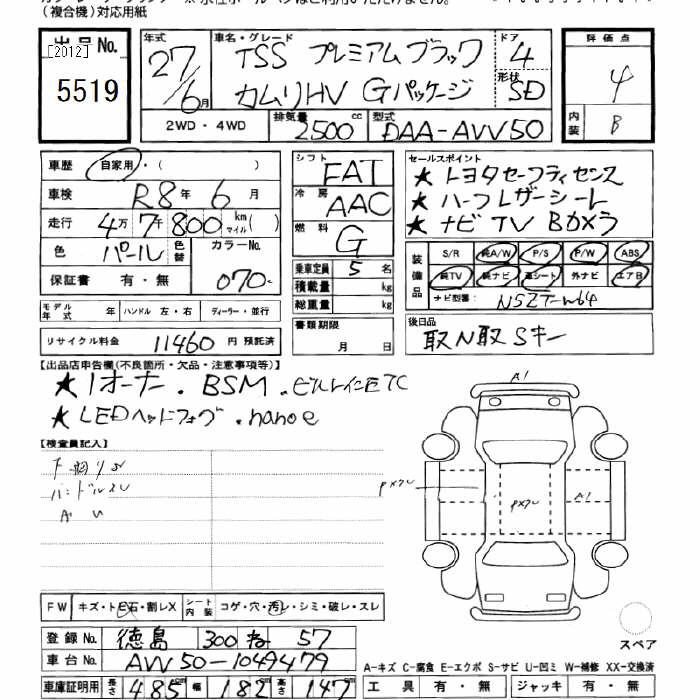 (複合機)対応用紙
出品No.
[2012]
5519
年式 27/6月
車名・グレード TSS プレミアムブラック
カムリHV Gパッケージ
ドア 4
形状 SD
評価点 4
内装 B
2WD・4WD
排気量 2500 cc
型式 DAA-AVV50
車歴 自家用・( )
車検 R8年 6月
走行 4万 7千 800 km マイル( )
色 パール 色替 カラーNo. 070
保証書 有・無
シフト FAT
冷房 AAC
燃料 G
乗車定員 5 名
積載量 kg
総重量 kg
セールスポイント
★トヨタセーフティセンス
★ハーフレザーシート
★ナビTV Bカメラ
装備品 S/R 純A/W P/S P/W ABS
純TV 純ナビ 革シート 外ナビ エアB
ナビ型番: NSZT-W64
モデル年式 年 ハンドル 左・右 ディーラー・並行
リサイクル料金 11460 円 預託済
書類期限 月 日
後日品
取N取Sキー
【出品店申告欄(不良箇所・欠品・注意事項等)】
★1オーナー.BSM.ビルトインETC
★LEDヘッドフォグ.nanoe
【検査員記入】
下廻りサ
A1
PXクレ
PXクレ
A1
FW キズ・トビ石・割レX シート内装 コゲ・穴・汚レ・シミ・破レ・スレ
スペア
登録No. 徳島 300 ね 57
車台No. AVV50-1049479
車庫証明用 長さ 485 幅 182 高さ 147
A-キズ C-腐食 E-エクボ S-サビ U-凹ミ W-補修 XX-交換済
工具 有・無 ジャッキ 有・無